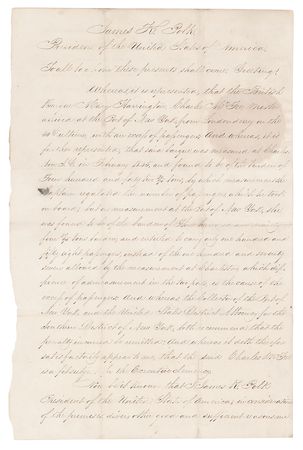 James K. Polk
President of the United States of America,
To all to whom these presents shall come, Greeting:
Whereas it is represented, that the British
Mary Harrington, Charles Mc
arrived at the Port of New York from Londonderry on the
with an excess of passengers. And whereas, it is
further represented, that said barque was measured at Charles
ton S. C. in February and found to be of the burden of
Four hundred and tons, by which measurement the
regulated the number of passengers which he took
on board; but on measurement at the Port of New York, she
was found to be of the burden of
five tons burden, and entitled to carry only one hundred and
fifty eight passengers, instead of the one hundred and seventy
allowed by the measurement at Charleston, which dif-
ference of admeasurement in the two ports is the cause of the
excess of passengers. And whereas the Collector of the Port of
New York, and the United States District Attorney for the
Southern District of New York, both recommend that the
penalty incurred be remitted; And whereas it doth thus far
satisfactorily appear to me, that the said Charles Mc
is a fit subject for the Executive clemency
Now be it known, that I James K. Polk
President of the United States of America, in consideration
of the premises, divers other good and sufficient reasons me